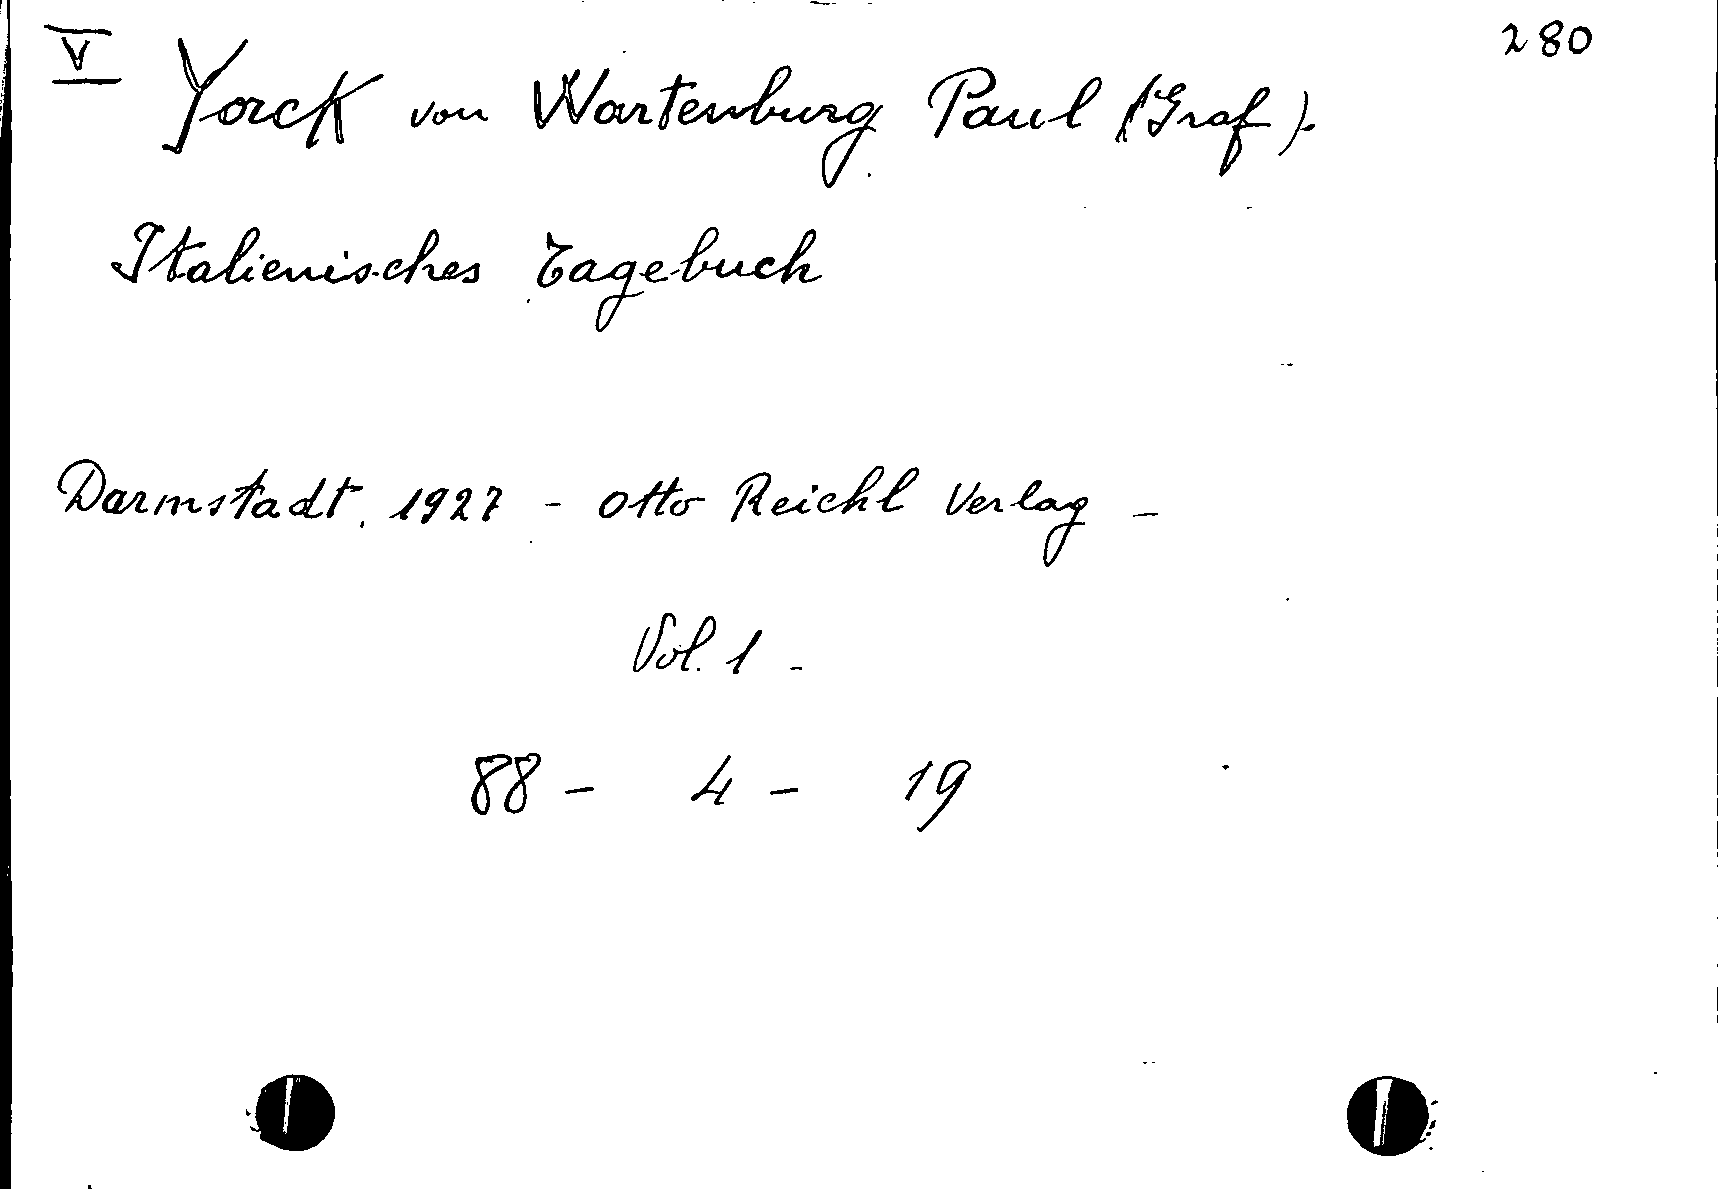 V 280
Yorck von Wartenburg Paul (Graf).
Italienisches Tagebuch
Darmstadt, 1927 - Otto Reichl Verlag -
Vol. 1 -
88 - 4 - 19